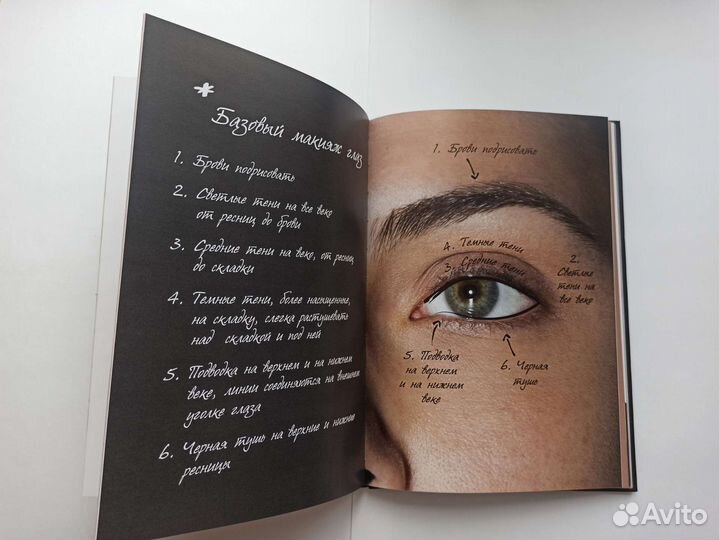 *
Базовый макияж глаз
1. Брови подрисовать
2. Светлые тени на все веко
от ресниц до брови
3. Средние тени на веко, от ресниц
до складки
4. Темные тени, более насыщенные,
на складку, слегка растушевать
над складкой и под ней
5. Подводка на верхнем и на нижнем
веке, линии соединяются на внешнем
уголке глаза
6. Черная тушь на верхние и нижние
ресницы
1. Брови подрисовать
4. Темные тени
3. Средние тени
2.
Светлые
тени на
все веко
5. Подводка
на верхнем
и на нижнем
веке
6. Черная
тушь
Avito